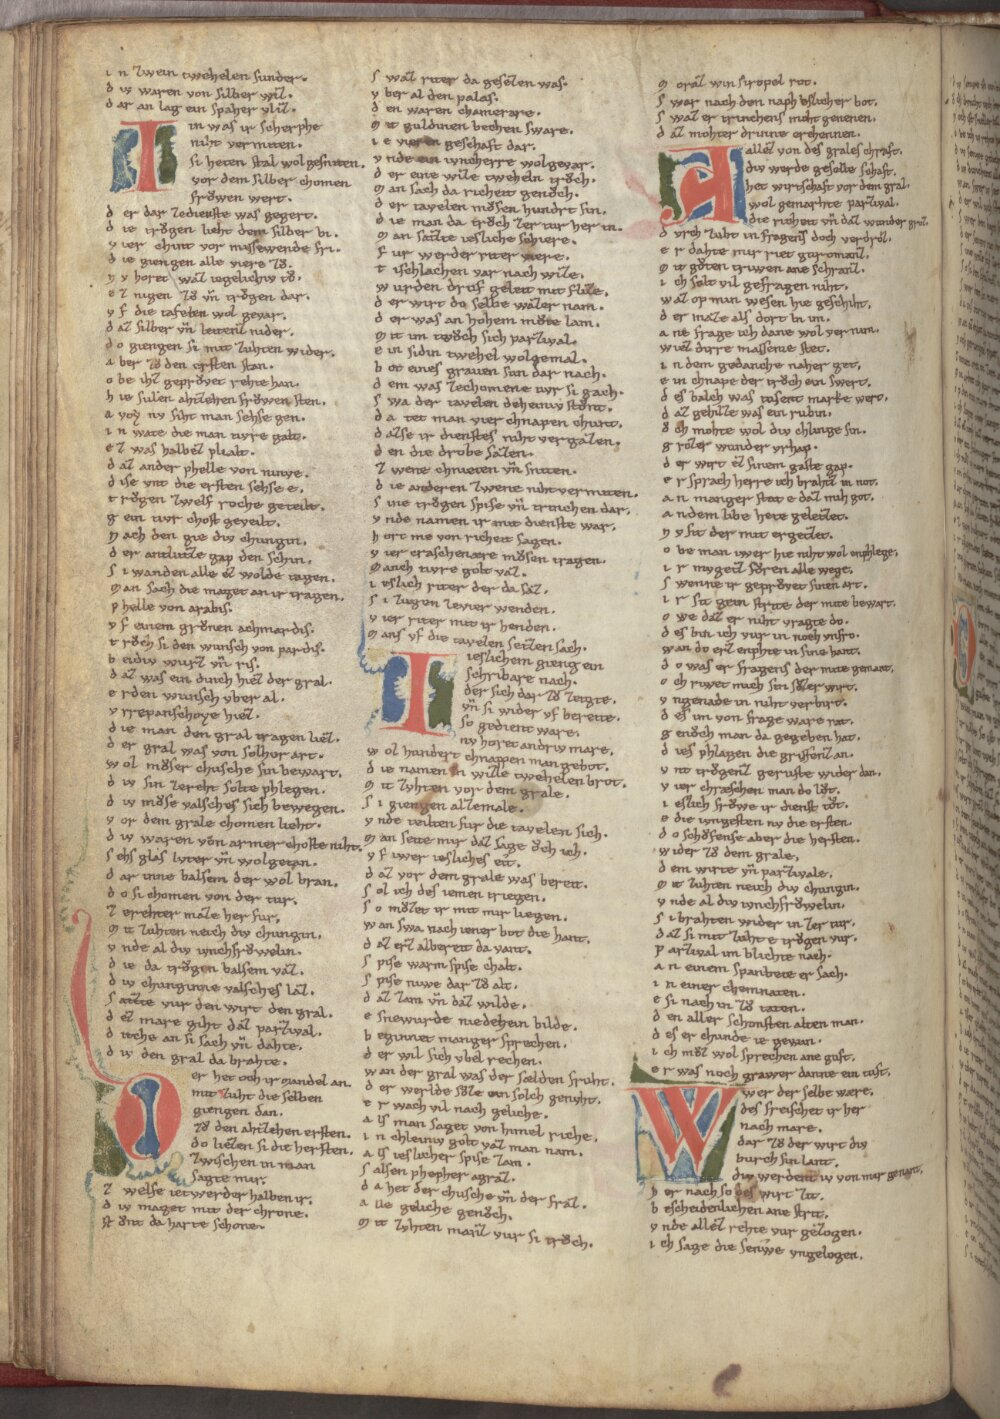 i n zwein twehelen sunder.
d iv waren von silber wiz.
d ar an lag ein spaher vliz.
I in was ir scherphe
niht vermiten.
si heten stal wol gesniten.
vor dem silber chomen
frowen wert.
d er dar ze dienste was gegert.
d ie trogen lieht dem silber bi.
y ier chint vor missewende fri.
d ie giengen alle viere zo.
n y horet waz iegelichiv to.
e z nigen zo vn trogen dar.
y f die tafelen wol gevar.
d az silber vn leitenz nider.
d o giengen si mit zuhten wider.
a ber zo den ersten stan.
o be ihz geprovet rehte han.
h ie sulen ahzehen frowen sten.
a voy nv siht man sehse gen.
i n wate die man tivre galt.
e z was halbez plialt.
d az ander phelle von ninve.
d ise vnt die ersten sehse e.
t rogen zwelf roche geteilt.
g ein tivr chost geveilt.
n ach den gie div chungin.
d er antlutze gap den schin.
s i wanden alle ez wolde tagen.
m an sach die maget an ir tragen.
p helle von arabis.
y f einem gronen achmardis.
t roch si den wunsch von pardis.
b eidiv wurz vn ris.
d az was ein dinch hiez der gral.
e rden wunsch vber al.
y rrepanschoye hiez.
d ie man den gral tragen liez.
d er gral was von solher art.
w ol moser chusche sin bewart.
d iv sin zereht solte phlegen.
d iv mose valsches sich bewegen.
y or dem grale chomen lieht.
d iv waren von armer choste niht.
s ehs glas lvter vn wolgetan.
d ar inne balsem der wol bran.
d o si chomen von der tur.
z erehter maze her fur.
m it zuhten neich div chungin.
y nde al div ivnchfrowelin.
d ie da trogen balsem vaz.
d iv chunginne valsches laz.
s atzte vur den wirt den gral.
d ez mare giht daz parzival.
d iche an si sach vn dahte.
d iv den gral da brahte.
D er het och ir mandel an.
mit zuht die selben
giengen dan.
zo den ahzehen ersten.
do liezen si die hersten.
zwischen in man
sagte mir.
z welfe ietwerder halben ir.
d iv maget mit der chrone.
st ont da harte schone.
s waz riter da gesezen was.
y ber al den palas.
d en waren chamerare.
m it guldinen bechen sware.
i e vieren geschaft dar.
y nde ein ivncherre wolgevar.
d er eine wize tweheln troch.
m an sach da richeit genoch.
d er tavelen mosen hundrt sin.
d ie man da troch zer tur her in.
m an satzte iesliche schiere.
f ur werder riter viere.
t ischlachen var nach wize.
w urden druf geleit mit flize.
d er wirt do selbe wazer nam.
d er was an hohem mote lam.
m it im twoch sich parzival.
e in sidin twehel wolgemal.
b ot eines graven sun dar nach.
d em was zechomene tivr si gach.
s wa der tavelen deheiniv stont.
d a tet man vier chnapen chunt.
d azse ir dienstes niht vergazen.
d en die drobe sazen.
z wene chnieten vn sniten.
d ie anderen zwene niht vermiten.
s ine trogen spise vn trinchen dar.
y nde namen ir mit dienste war.
h ort me von richeit sagen.
y ier eraschenare mosen tragen.
m anch tivre golt vaz.
i eslich riter der da saz.
s i zugen ze vier wenden.
y ier riter mit ir henden.
m ans vf die tavelen setzen sach.
I ieslichem gieng ein
schribare nach.
der sich dar zo zeigte.
vn si wider vf bereite.
so gedient ware.
nv horet andriv mare.
w ol hundert chnappen man gebot.
d ie namen in wize twehelen brot.
m it zuhten vor dem grale.
s i giengen alzemale.
y nde teilten fur die tavelen sich.
m an seite mir daz sage och ich.
y f iwer iesliches eit.
d az vor dem grale was bereit.
s ol ich des iemen triegen.
s o mozet ir mit mir liegen.
w an swa nach iener bot die hant.
d az erz albereit da vant.
s pise warm spise chalt.
s pise nuwe dar zo alt.
d az zam vn daz wilde.
e snewurde niedehein bilde.
b eginnet maniger sprechen.
d er wil sich vbel rechen.
w an der gral was der sælden fruht.
d er werlde soze ein solch genuht.
e r wach vil nach geliche.
a ls man saget von himel riche.
i n chleiniv golt vaz man nam.
a ls ieslicher spise zam.
s alsen phepher agraz.
d a het der chusche vn der fraz.
a lle geliche genoch.
m it zvhten manz vur si troch.
m oraz win siropel rot.
s war nach den naph ieslicher bot.
s waz er trinchens niht genenen.
d az mohter drinne erchennen.
A allez von des grales chraft.
div werde geselle schaft.
het wirtschaft vor dem gral.
wol gemarhte parzival.
die richeit vn daz wunder groz.
d vrch zuht in fragens doch verdroz.
e r dahte mir riet gurnomanz.
m it grozen triwen ane schranz.
i ch solt vil gefragen niht.
w az op min wesen hie geschiht.
d er maze als dort bi im.
a ne frage ich dane wol vernim.
w iez dirre massenie stet.
i n dem gedanche naher get.
e in chnape der troch ein swert.
d es balch was tusent marke wert.
d az gehilze was ein rubin.
o ch mohte wol div chlinge sin.
g rozer wunder vrhap.
d er wirt ez sinem gaste gap.
e r sprach herre ich brahtz in not.
a n manger stat e daz mih got.
a n dem libe hete geletzet.
n v sit der mit ergetzet.
o be man iwer hie niht wol enphlege,
i r mvgetz foren alle wege.
s wenne ir geprovet sinen art.
i r sit gein strite der mite bewart.
o we daz er niht vragte do.
d es bin ich vur in noch vnfro.
w an do erz enphie in sine hant.
d o was er fragens der mite gemant.
o ch riwet mich sin sozer wirt.
y ngenade in niht verbirt.
d es im von frage ware rat.
g enoch man da gegeben hat.
d ies phlagen die griffenz an.
y nt trogenz geruste wider dan.
y ier chraschen man do lot.
i eslich frowe ir dienst tot.
e die ivngesten nv die ersten.
d o schofense aber die hersten.
w ider zo dem grale,
d em wirte vn parzivale.
m it zuhten neich div chungin.
y nde al div ivnchfrowelin.
s i brahten wider in zer tur.
d az si mit zuht e trogen vur.
p arzival im blichte nach.
a n einem spanbete er sach.
i n einer chemnaten.
e si nach in zo taten.
d en aller schonsten alten man.
d es er chunde ie gewan.
i ch moz wol sprechen ane guft.
e r was noch grawer danne ein tuft.
W wer der selbe wære.
des freischet ir her
nach mare.
dar zo der wirt div
burch sin lant.
div werdent iv von mir genant,
h er nach so des wirt zit.
b escheidenlichen ane strit.
y nde allez rehte vur gezogen.
i ch sage die senwe vngelogen.